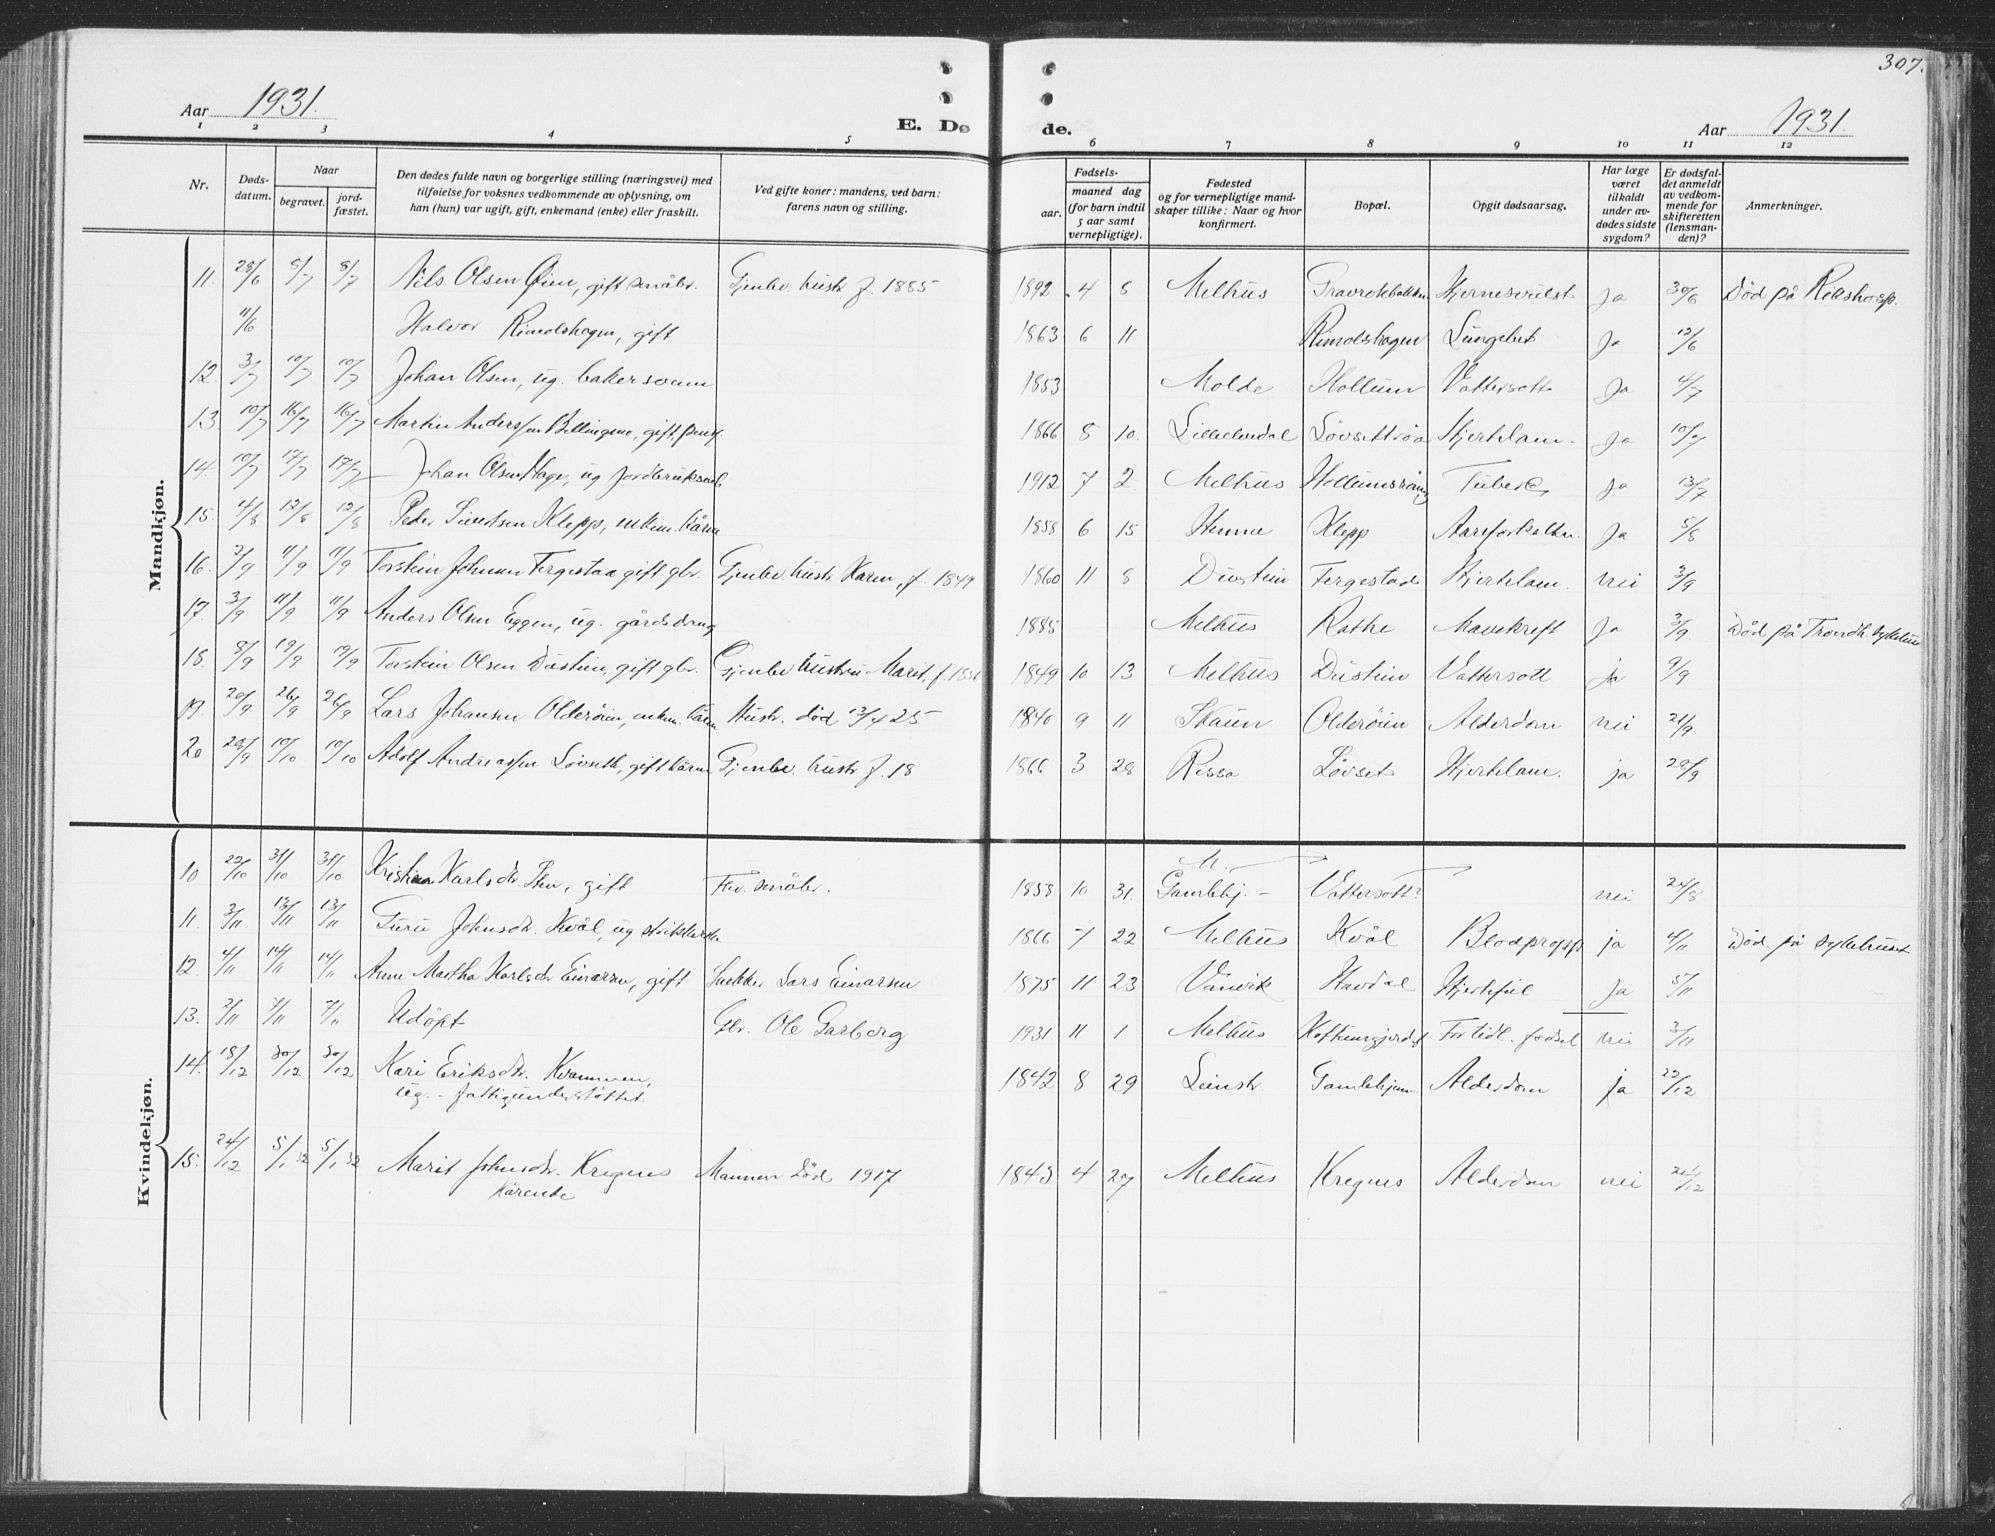 307.
Aar 1931. E. Dø de. Aar 1931.
1 2 3 4 5 6 7 8 9 10 11 12
Nr.
Døds-
datum.
Naar
begravet.
jord-
fæstet.
Den dødes fulde navn og borgerlige stilling (næringsvei) med
tilføielse for voksnes vedkommende av oplysning, om
han (hun) var ugift, gift, enkemand (enke) eller fraskilt.
Ved gifte koner: mandens, ved barn:
farens navn og stilling.
Fødsels-
aar.
maaned dag
(for barn indtil
5 aar samt
vernepligtige).
Fødested
og for vernepligtige mand-
skaper tillike: Naar og hvor
konfirmert.
Bopæl.
Opgit dødsaarsag.
Har læge
været
tilkaldt
under av-
dødes sidste
sygdom?
Er dødsfal-
det anmeldt
av vedkom-
mende for
skifteretten
(lensman-
den)?
Anmerkninger.
Mandkjøn.
11. 28/6 8/7 8/7 Nils Olsen Øien, gift småbr. Gjenlev. hustr f. 1885 1892 4 8 Melhus Gravrokbakken Hjernesvulst ja 30/6 Død på Rikshosp.
11/6 Halvor Rimolshagen, gift 1863 6 11 Rimolshagen Lungebet ja 12/6
12. 3/7 10/7 10/7 Johan Olsen, ug. bakersvenn 1853 Molde Hollum Vattersott ja 4/7
13. 10/7 16/7 16/7 Martin Anderssen Bellingmo, gift, pens. 1866 8 10. Lilleelvdal Løvsettrøa Hjertelam. ja 10/7
14. 10/7 17/7 17/7 Johan Olsen Hage, ug jordbruksarb 1912 7 2 Melhus Tuberk. ja 13/7
15. 4/8 12/8 12/8 Peder Sivertsen Klepp, enkem. kårm 1858 6 15 Hemne Klepp Aareforkalkn. ja 5/8
16. 2/9 11/9 11/9 Torstein Johnsen Fergestad gift gbr. Gjenlev hustr Karen, f. 1849 1860 11 8 Dustein Fergestad Hjertelam. nei 3/9
17. 3/9 11/9 11/9 Anders Olsen Eggen, ug. gårdsdreng 1885 Melhus Rathe Mavekreft ja 3/9 Død på Trondh. sykehus
18. 8/9 19/9 19/9 Torstein Olsen Dustein, gift gbr. Gjenlev hustru Marit, f. 1849 10 13 Melhus Dustein Vattersott ja 9/9
19. 20/9 26/9 26/9 Lars Johansen Olderøien, enkem. kårm Hustr. død 13/4 25 1840 9 11 Skaun Olderøien Alderdom nei 21/9
20 28/9 10/10 10/10 Adolf Andreassen Løvseth, gift kårm Gjenlev. hustr f. 18 1866 3 28 Rissa Løvset Hjertelam. ja 29/9
Kvindekjøn.
10 22/10 31/10 31/10 Kristiana Karlsdtr. gift Fhv. småbr. 1858 10 31. M. Gamlehj. Vattersott? nei
11. 3/11 13/11 13/11 Guru Johnsdtr. Kvål, ug 1866 7 22 Melhus Kvål Blodpropp ja 4/11 Død på sykehuset
12. 4/11 14/11 14/11 Anne Martha Karlsdtr Einarsen, gift Snekker Lars Einarsen 1875 11 23 Vanvik Havdal Hjertefeil ja 5/11
13. 2/11 7/11 7/11 Udöpt Gbr. Ole Garberg 1931 11 1. Melhus For tidl. fødsel nei 3/11
14. 18/12 30/12 30/12 Kari Eriksdtr. Kvammen, 1842 8 29 Leinstr. Gamlehjem Alderdom ja 22/12
ug. - fattigunderstöttet.
15. 24/12 5/1 32 5/1 32 Marit Johnsdtr. Kregnes Mannen død 1917 1843 4 27 Melhus Kregnes Alderdom nei
Kårenke